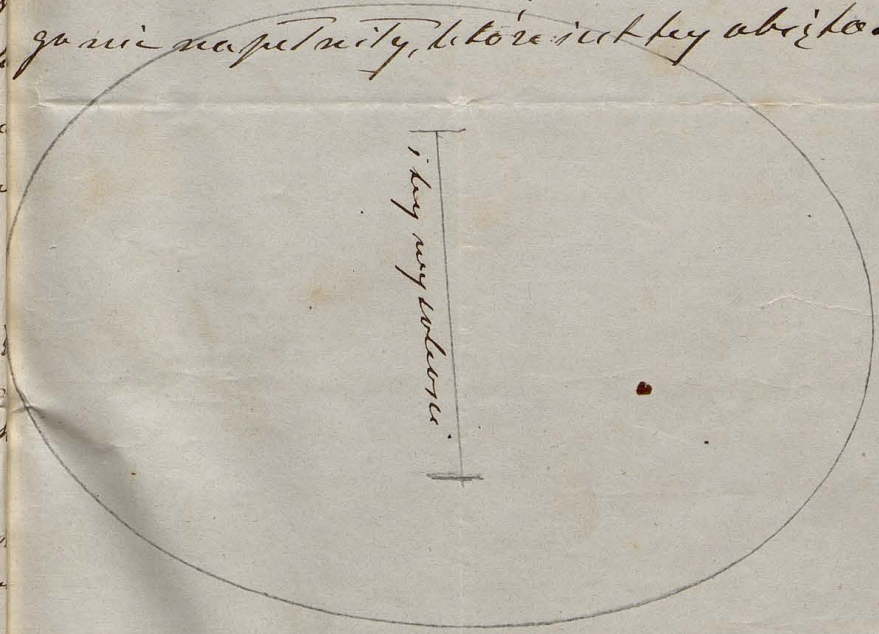 go nie napełniły, które jest tey obięto
i tey wysokości.